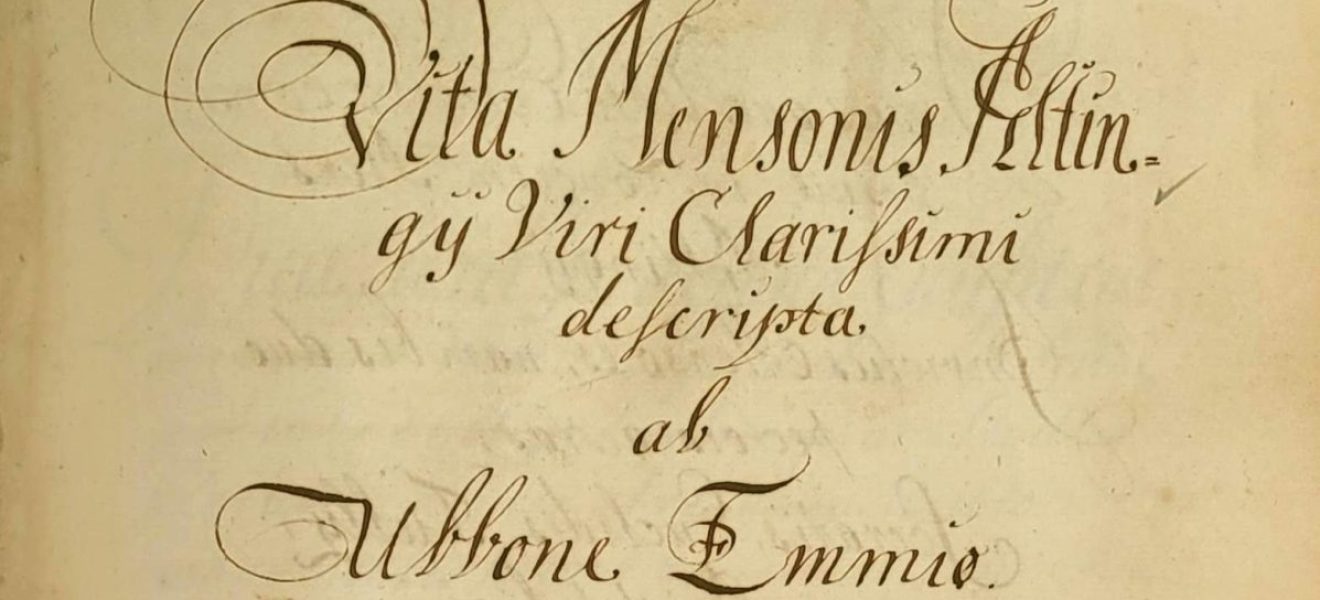 Vita Mensonis Altin=
gÿ Viri Clariſsimi
deſcripta.
ab
Ubbone Emmio.